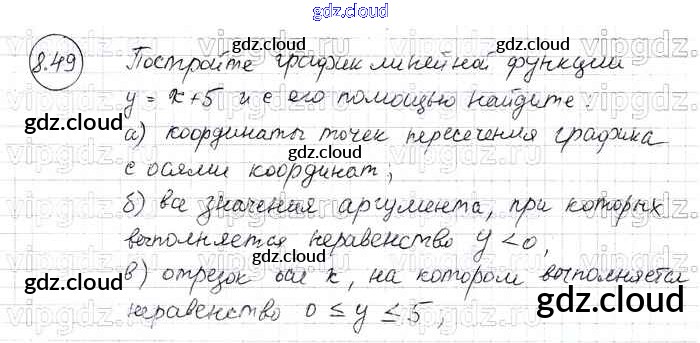 gdz.cloud
8.49 Постройте график линейной функции
y = x+5 и с его помощью найдите:
а) координаты точек пересечения графика
с осями координат;
б) все значения аргумента, при которых
выполняется неравенство y < 0,
в) отрезок оси x, на котором выполняется
неравенство 0 ≤ y ≤ 5,
gdz.cloud
gdz.cloud
gdz.cloud
gdz.cloud
gdz.cloud
gdz.cloud
gdz.cloud
gdz.cloud
gdz.cloud
gdz.cloud